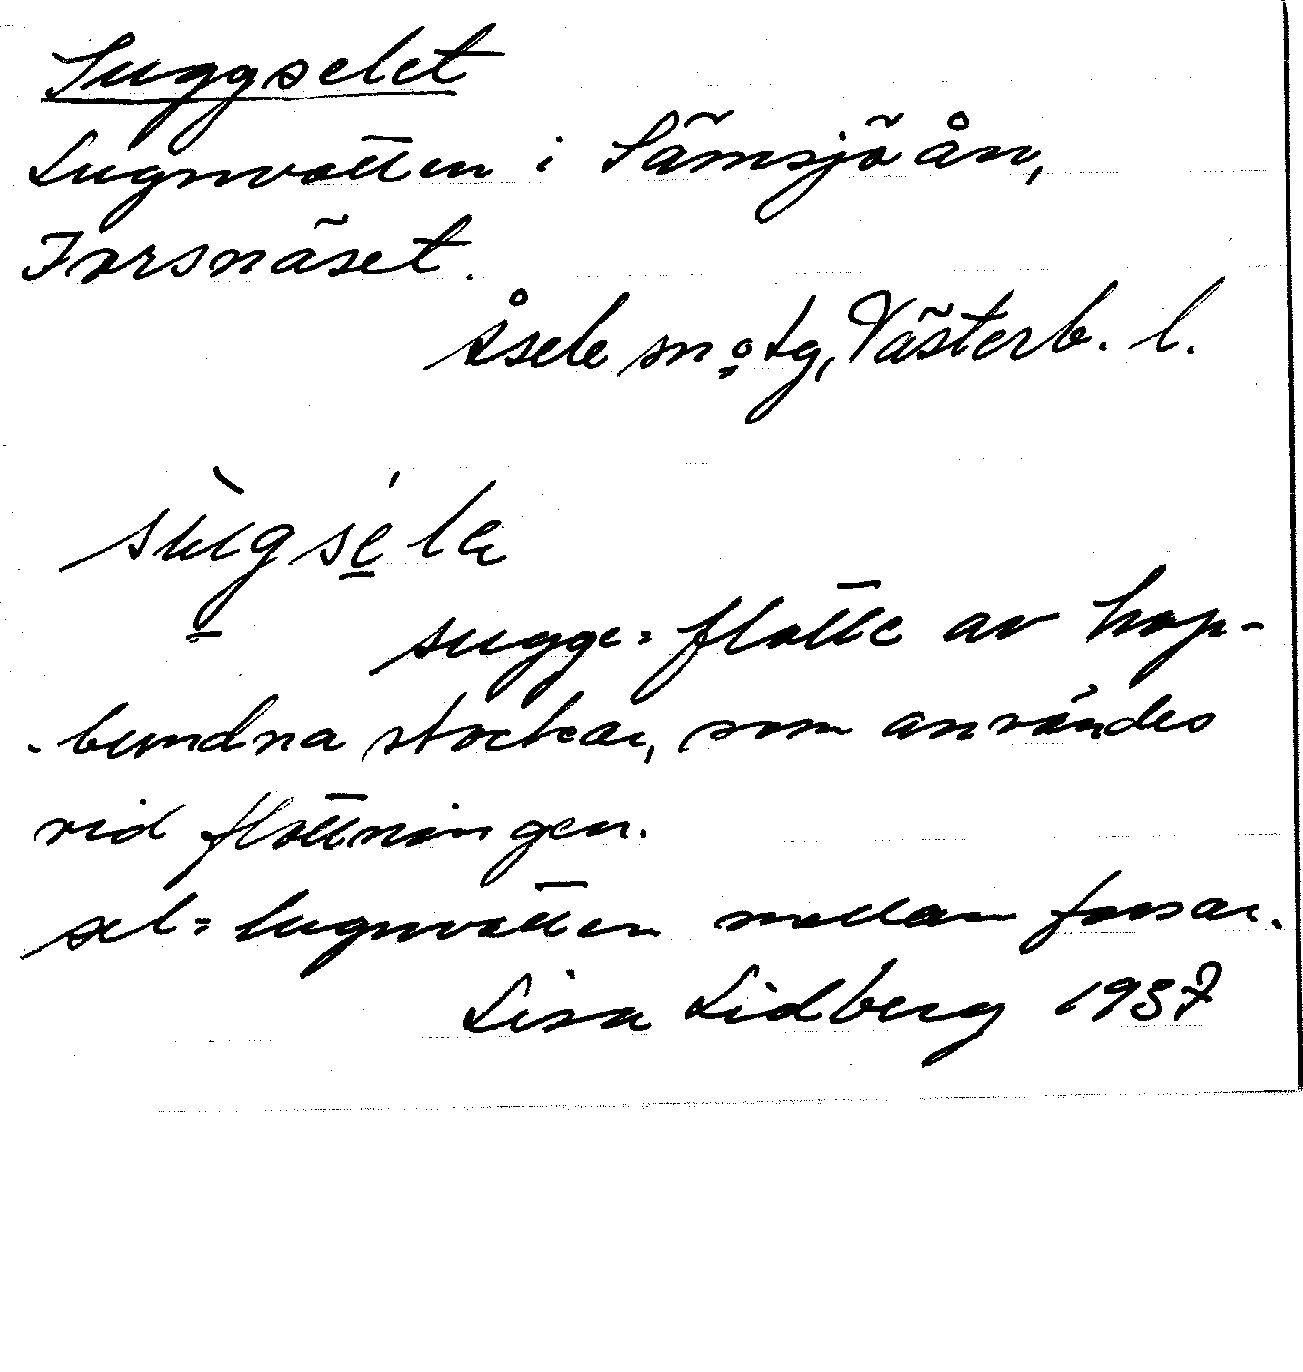 Suggselet
Lugnvatten i Sämsjöån,
Forsnäset.
Åsele sn o tg, Västerb. l.
sùgse̱ˈla
sugge = flotte av hop-
-bundna stockar, som användes
vid flottningen.
sel = lugnvatten mellan forsar.
Lisa Lidberg 1937